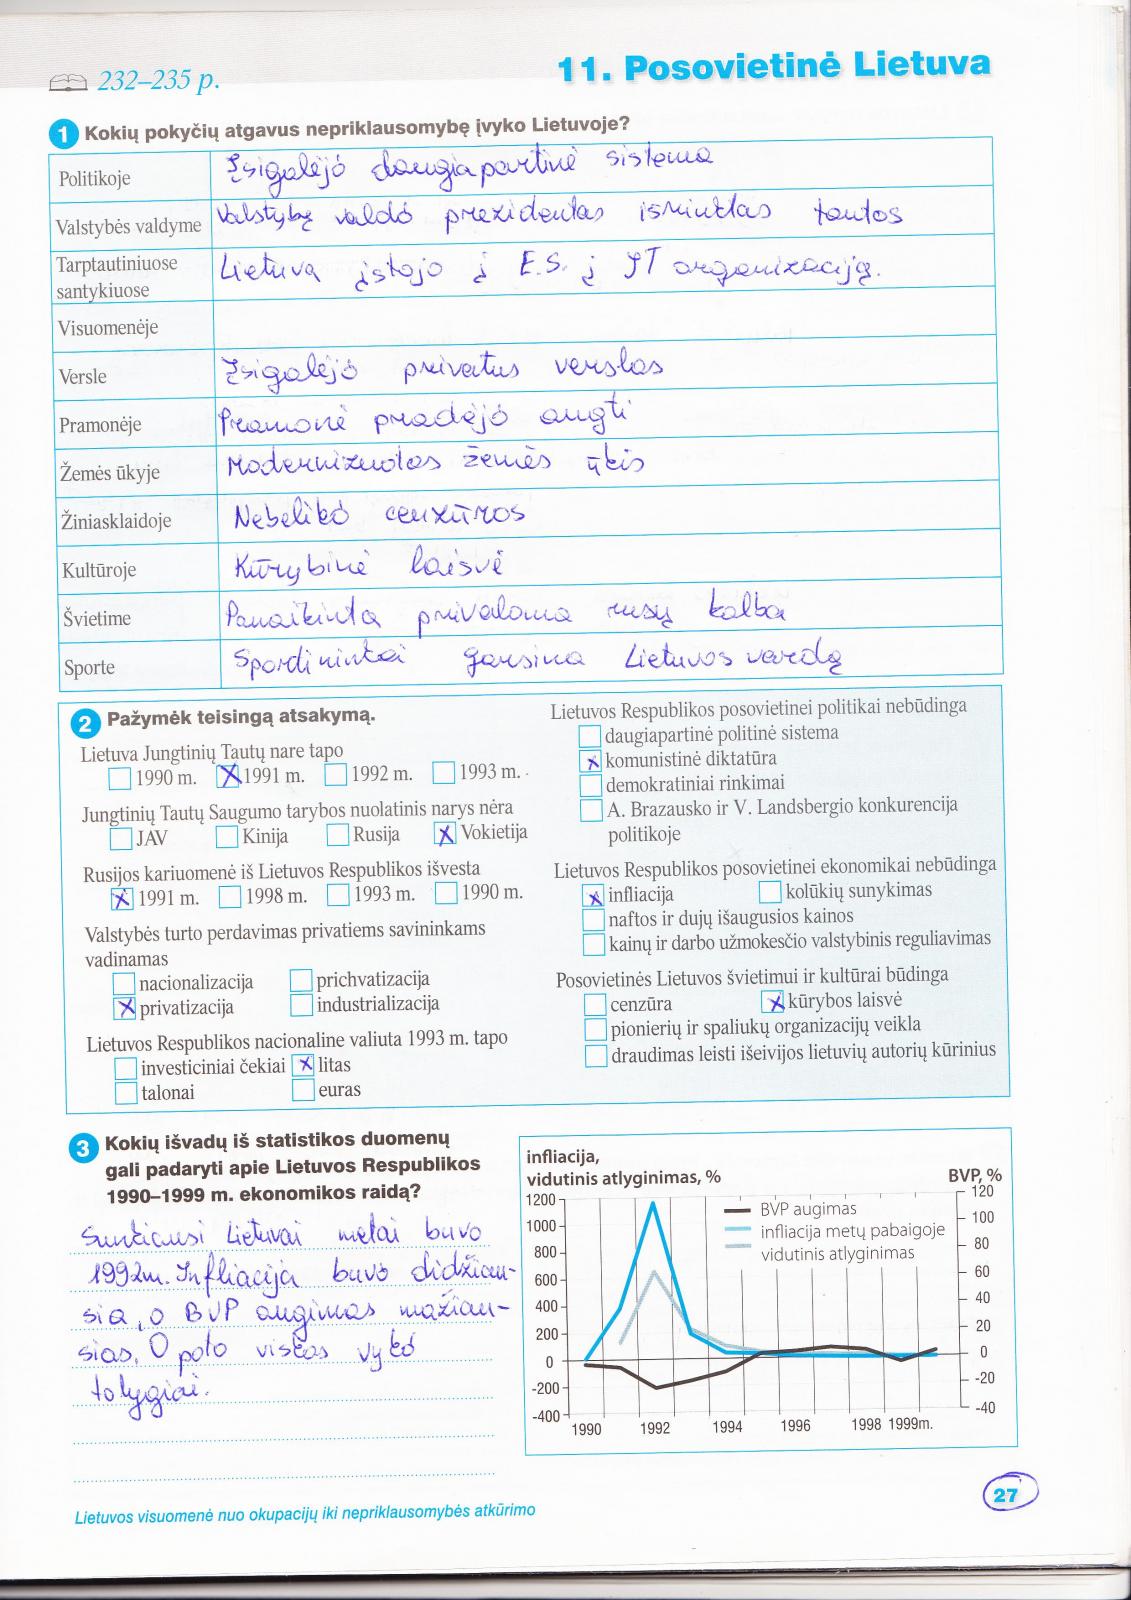 232–235 p.
11. Posovietinė Lietuva
1 Kokių pokyčių atgavus nepriklausomybę įvyko Lietuvoje?
Politikoje Įsigalėjo daugiapartinė sistema
Valstybės valdyme Valstybę valdo prezidentas išrinktas tautos
Tarptautiniuose santykiuose Lietuva įstojo į E.S. į JT organizaciją.
Visuomenėje
Versle Įsigalėjo privatus verslas
Pramonėje Pramonė pradėjo augti
Žemės ūkyje Modernizuotas žemės ūkis
Žiniasklaidoje Nebeliko cenzūros
Kultūroje Kūrybinė laisvė
Švietime Panaikinta privaloma rusų kalba
Sporte Spordininkai garsina Lietuvos vardą
2 Pažymėk teisingą atsakymą.
Lietuva Jungtinių Tautų nare tapo
1990 m. X 1991 m. 1992 m. 1993 m.
Jungtinių Tautų Saugumo tarybos nuolatinis narys nėra
JAV Kinija Rusija X Vokietija
Rusijos kariuomenė iš Lietuvos Respublikos išvesta
X 1991 m. 1998 m. 1993 m. 1990 m.
Valstybės turto perdavimas privatiems savininkams
vadinamas
nacionalizacija prichvatizacija
X privatizacija industrializacija
Lietuvos Respublikos nacionaline valiuta 1993 m. tapo
investiciniai čekiai X litas
talonai euras
Lietuvos Respublikos posovietinei politikai nebūdinga
daugiapartinė politinė sistema
X komunistinė diktatūra
demokratiniai rinkimai
A. Brazausko ir V. Landsbergio konkurencija
politikoje
Lietuvos Respublikos posovietinei ekonomikai nebūdinga
X infliacija kolūkių sunykimas
naftos ir dujų išaugusios kainos
kainų ir darbo užmokesčio valstybinis reguliavimas
Posovietinės Lietuvos švietimui ir kultūrai būdinga
cenzūra X kūrybos laisvė
pionierių ir spaliukų organizacijų veikla
draudimas leisti išeivijos lietuvių autorių kūrinius
3 Kokių išvadų iš statistikos duomenų
gali padaryti apie Lietuvos Respublikos
1990–1999 m. ekonomikos raidą?
Sunkiausi Lietuvai metai buvo
1992m. Infliacija buvo didžiau-
sia, o BVP augimas mažiau-
sias. O poto viskas vyko
tolygiai.
infliacija,
vidutinis atlyginimas, %
BVP, %
BVP augimas
infliacija metų pabaigoje
vidutinis atlyginimas
1200 120
1000 100
800 80
600 60
400 40
200 20
0 0
-200 -20
-400 -40
1990 1992 1994 1996 1998 1999m.
Lietuvos visuomenė nuo okupacijų iki nepriklausomybės atkūrimo
27